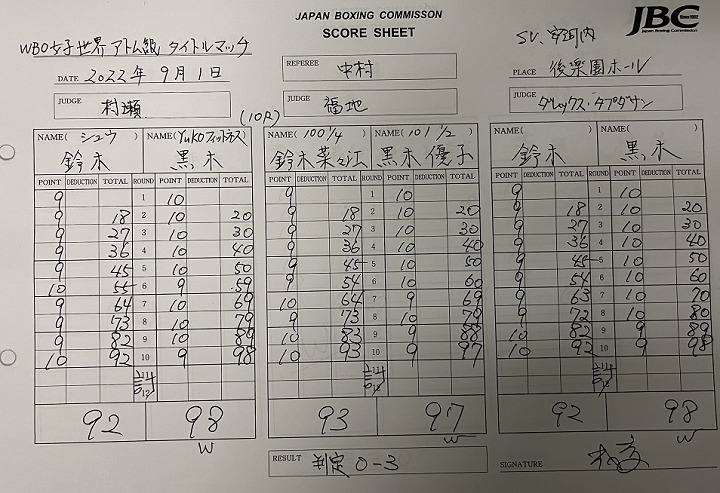 JAPAN BOXING COMMISSON
SCORE SHEET
JBC
Since 1952
Japan Boxing Commission
WBO女子世界アトム級タイトルマッチ
DATE 2022年9月1日
REFEREE 中村
PLACE 後楽園ホール
JUDGE 村瀬
(10R)
JUDGE 福地
JUDGE
NAME( シュウ ) NAME(YuKOフィットネス) NAME( 100 1/4 ) NAME( 101 1/2 ) NAME( ) NAME( )
鈴木 黒木 鈴木菜々江 黒木優子 鈴木 黒木
POINT DEDUCTION TOTAL ROUND POINT DEDUCTION TOTAL POINT DEDUCTION TOTAL ROUND POINT DEDUCTION TOTAL POINT DEDUCTION TOTAL ROUND POINT DEDUCTION TOTAL
9 1 10 9 1 10 9 1 10
9 18 2 10 20 9 18 2 10 20 9 18 2 10 20
9 27 3 10 30 9 27 3 10 30 9 27 3 10 30
9 36 4 10 40 9 36 4 10 40 9 36 4 10 40
9 45 5 10 50 9 45 5 10 50 9 45 5 10 50
10 55 6 9 59 9 54 6 10 60 9 54 6 10 60
9 64 7 10 69 10 64 7 9 69 9 63 7 10 70
9 73 8 10 79 9 73 8 10 79 9 72 8 10 80
9 82 9 10 89 10 83 9 9 88 10 82 9 9 89
10 92 10 9 98 10 93 10 9 97 10 92 10 9 98
計 計 計
92 98 93 97 92 98
W W W
RESULT 判定 0-3
SIGNATURE